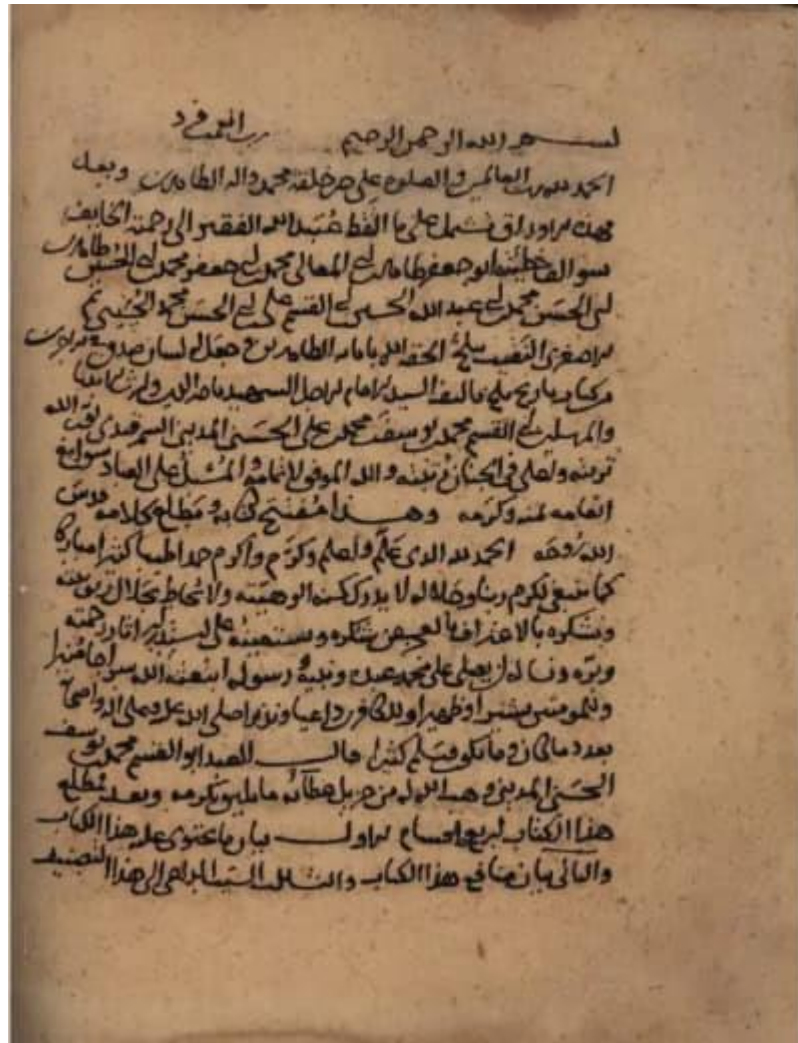 بسم الله الرحمن الرحيم رب
الحمد لله رب العالمين والصلوة على خير خلقه محمد واله الطاهرين وبعد
فهذه الاوراق تشتمل على ما التقط عبيد الله الفقير الى رحمة الخايف
ابو جعفر طاهر بن ابي المعالي محمد بن ابي جعفر محمد بن ابي الحسين طاهر بن
ابي الحسن محمد بن عبد الله الحسين بن القسم علي بن ابي الحسن محمد
الحقه الله بابائه الطاهرين وجعل له لسان صدق
من كتاب تاريخ بلخ تاليف السيد الامام الاجل الشهيد ناصر الدين
ابي القسم محمد بن يوسف محمد بن علي الحسني المديني السمرقندي
تربته في الجنان رتبته والله الموفق لاتمامه على العباد سوابغ
انعامه بمنه وكرمه وهذا مفتتح كتابه ومطلع كلامه قدس
الله روحه الحمد لله الذي علم وكرم واكرم حمدا طيبا كثيرا مباركا
كما ينبغي لكرم ربنا وجلاله لا يدرك كنه الوهيته ولا يحاط بجلال ربوبيته
ونشكره بالاعتراف بالعجز عن شكره ونستعينه على
وبره ونساله ان يصلي على محمد عبده ونبيه ورسوله ابتعثه الله سراجا منيرا
وللمومنين بشيرا وظهيرا وللكافرين داعيا ونذيرا صلى الله عليه وعلى اله واصحابه
بعدد ما كان وما يكون وسلم كثيرا قال العبد ابو القسم محمد بن يوسف
الحسني المديني وهب الله له من جزيل عطائه ما يليق بكرمه وبعد مطلع
هذا الكتاب اربع اقسام الاول بيان ما يحتوي عليه هذا الكتاب
والثاني بيان منافع هذا الكتاب والثالث السبب الداعي الى هذا التصنيف